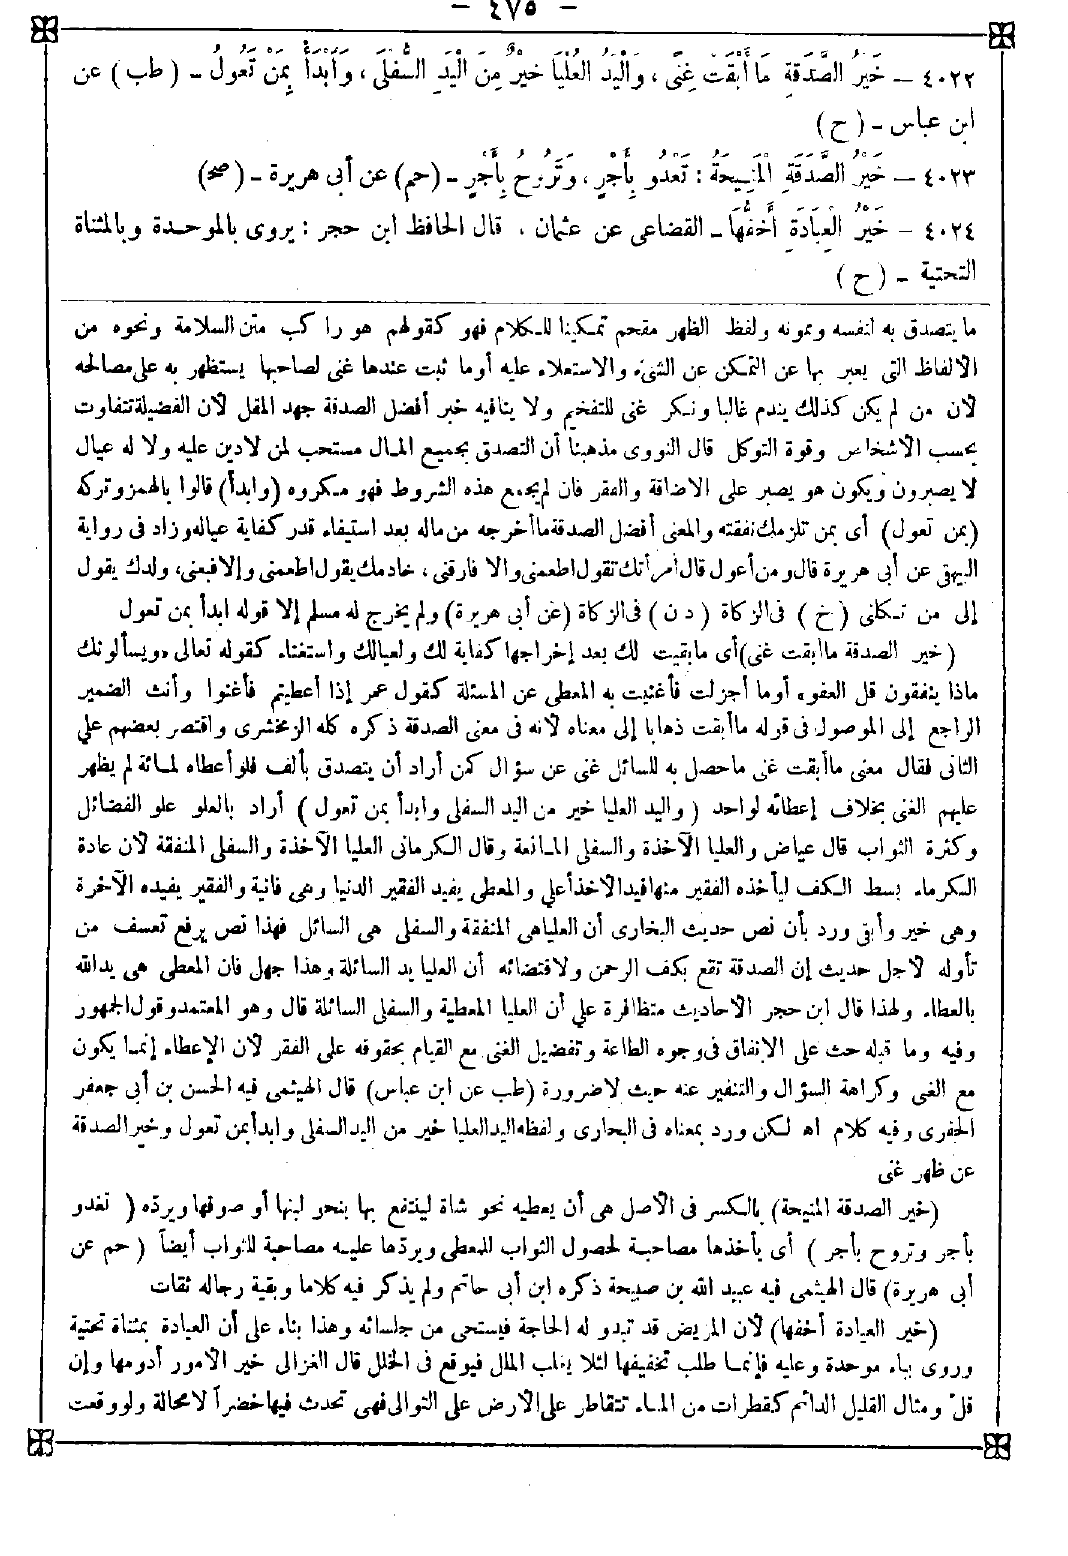 - ٤٧٥ -
٤٠٢٢ - خَيْرُ الصَّدَقَةِ مَا أَبْقَتْ غِنًى ، وَالْيَدُ الْعُلْيَا خَيْرٌ مِنَ الْيَدِ السُّفْلَى ، وَابْدَأْ بِمَنْ تَعُولُ - ( طب ) عن
ابن عباس - ( ح )
٤٠٢٣ - خَيْرُ الصَّدَقَةِ الْمَنِيحَةُ : تَغْدُو بِأَجْرٍ ، وَتَرُوحُ بِأَجْرٍ - (حم) عن أبى هريرة - (صح)
٤٠٢٤ - خَيْرُ الْعِيَادَةِ أَخَفُّهَا - القضاعى عن عثمان ، قال الحافظ ابن حجر : يروى بالموحدة وبالمثناة
التحتية - ( ح )
ما يتصدق به لنفسه وممونه ولفظ الظهر مقحم تمكينا للكلام فهو كقولهم هو راكب متن السلامة ونحوه من
الألفاظ التى يعبر بها عن التمكن عن الشىء والاستعلاء عليه أو ما ثبت عندها غنى لصاحبها يستظهر به على مصالحه
لأن من لم يكن كذلك يندم غالبا ونكر غنى للتفخيم ولا ينافيه خبر أفضل الصدقة جهد المقل لأن الفضيلة تتفاوت
بحسب الأشخاص وقوة التوكل قال النووى مذهبنا أن التصدق بجميع المال مستحب لمن لا دين عليه ولا له عيال
لا يصبرون ويكون هو يصبر على الاضاقة والفقر فان لم يجمع هذه الشروط فهو مكروه (وابدأ) قالوا بالهمز وتركه
(بمن تعول) أى بمن تلزمك نفقته والمعنى أفضل الصدقة ما أخرجه من ماله بعد استيفاء قدر كفاية عياله وزاد فى رواية
البيهقى عن أبى هريرة قال ومن أعول قال امرأتك تقول اطعمنى وإلا فارقنى ، خادمك يقول اطعمنى وإلا فبعنى ، ولدك يقول
إلى من تكلنى ( خ ) فى الزكاة ( د ن ) فى الزكاة (عن أبى هريرة) ولم يخرج له مسلم إلا قوله ابدأ بمن تعول
(خير الصدقة ما أبقت غنى) أى ما بقيت لك بعد إخراجها كفاية لك ولعيالك واستغناء كقوله تعالى «ويسألونك
ماذا ينفقون قل العفو» أو ما أجزلت فأغنيت به المعطى عن المسئلة كقول عمر إذا أعطيتم فأغنوا وأنث الضمير
الراجع إلى الموصول فى قوله ما أبقت ذهابا إلى معناه لأنه فى معنى الصدقة ذكره كله الزمخشرى واقتصر بعضهم على
الثانى فقال معنى ما أبقت غنى ما حصل به للسائل غنى عن سؤال كمن أراد أن يتصدق بألف فلو أعطاه لمائة لم يظهر
عليهم الغنى بخلاف إعطائه لواحد ( واليد العليا خير من اليد السفلى وابدأ بمن تعول ) أراد بالعلو علو الفضائل
وكثرة الثواب قال عياض والعليا الآخذة والسفلى المانعة وقال الكرمانى العليا الآخذة والسفلى المنفقة لأن عادة
الكرماء بسط الكف ليأخذه الفقير منها فيد الآخذ أعلى والمعطى يفيد الفقير الدنيا وهى فانية والفقير يفيده الآخرة
وهى خير وأبقى ورد بأن نص حديث البخارى أن العليا هى المنفقة والسفلى هى السائل فهذا نص يرفع تعسف من
تأوله لأجل حديث إن الصدقة تقع بكف الرحمن ولاقتضائه أن العليا يد السائلة وهذا جهل فان المعطى هى يد الله
بالعطاء ولهذا قال ابن حجر الأحاديث متظافرة على أن العليا المعطية والسفلى السائلة قال وهو المعتمد وقول الجمهور
وفيه وما قبله حث على الإنفاق فى وجوه الطاعة وتفضيل الغنى مع القيام بحقوقه على الفقر لأن الإعطاء إنما يكون
مع الغنى وكراهة السؤال والتنفير عنه حيث لا ضرورة (طب عن ابن عباس) قال الهيثمى فيه الحسن بن أبى جعفر
الجفرى وفيه كلام اه لكن ورد بمعناه فى البخارى ولفظه اليد العليا خير من اليد السفلى وابدأ بمن تعول وخير الصدقة
عن ظهر غنى
(خير الصدقة المنيحة) بالكسر فى الأصل هى أن يعطيه نحو شاة لينتفع بها بنحو لبنها أو صوفها ويرده ( تغدو
بأجر وتروح بأجر ) أى يأخذها مصاحبة لحصول الثواب للمعطى ويردها عليه مصاحبة للثواب أيضاً ( حم عن
أبى هريرة) قال الهيثمى فيه عبيد الله بن صبيحة ذكره ابن أبى حاتم ولم يذكر فيه كلاما وبقية رجاله ثقات
(خير العيادة أخفها) لأن المريض قد تبدو له الحاجة فيستحى من جلسائه وهذا بناء على أن العيادة بمثناة تحتية
وروى بباء موحدة وعليه فإنما طلب تخفيفها لئلا يغلب الملل فيوقع فى الخلل قال الغزالى خير الأمور أدومها وإن
قل ومثال القليل الدائم كقطرات من الماء تتقاطر على الأرض على التوالى فهى تحدث فيها خضراً لا محالة ولو وقعت